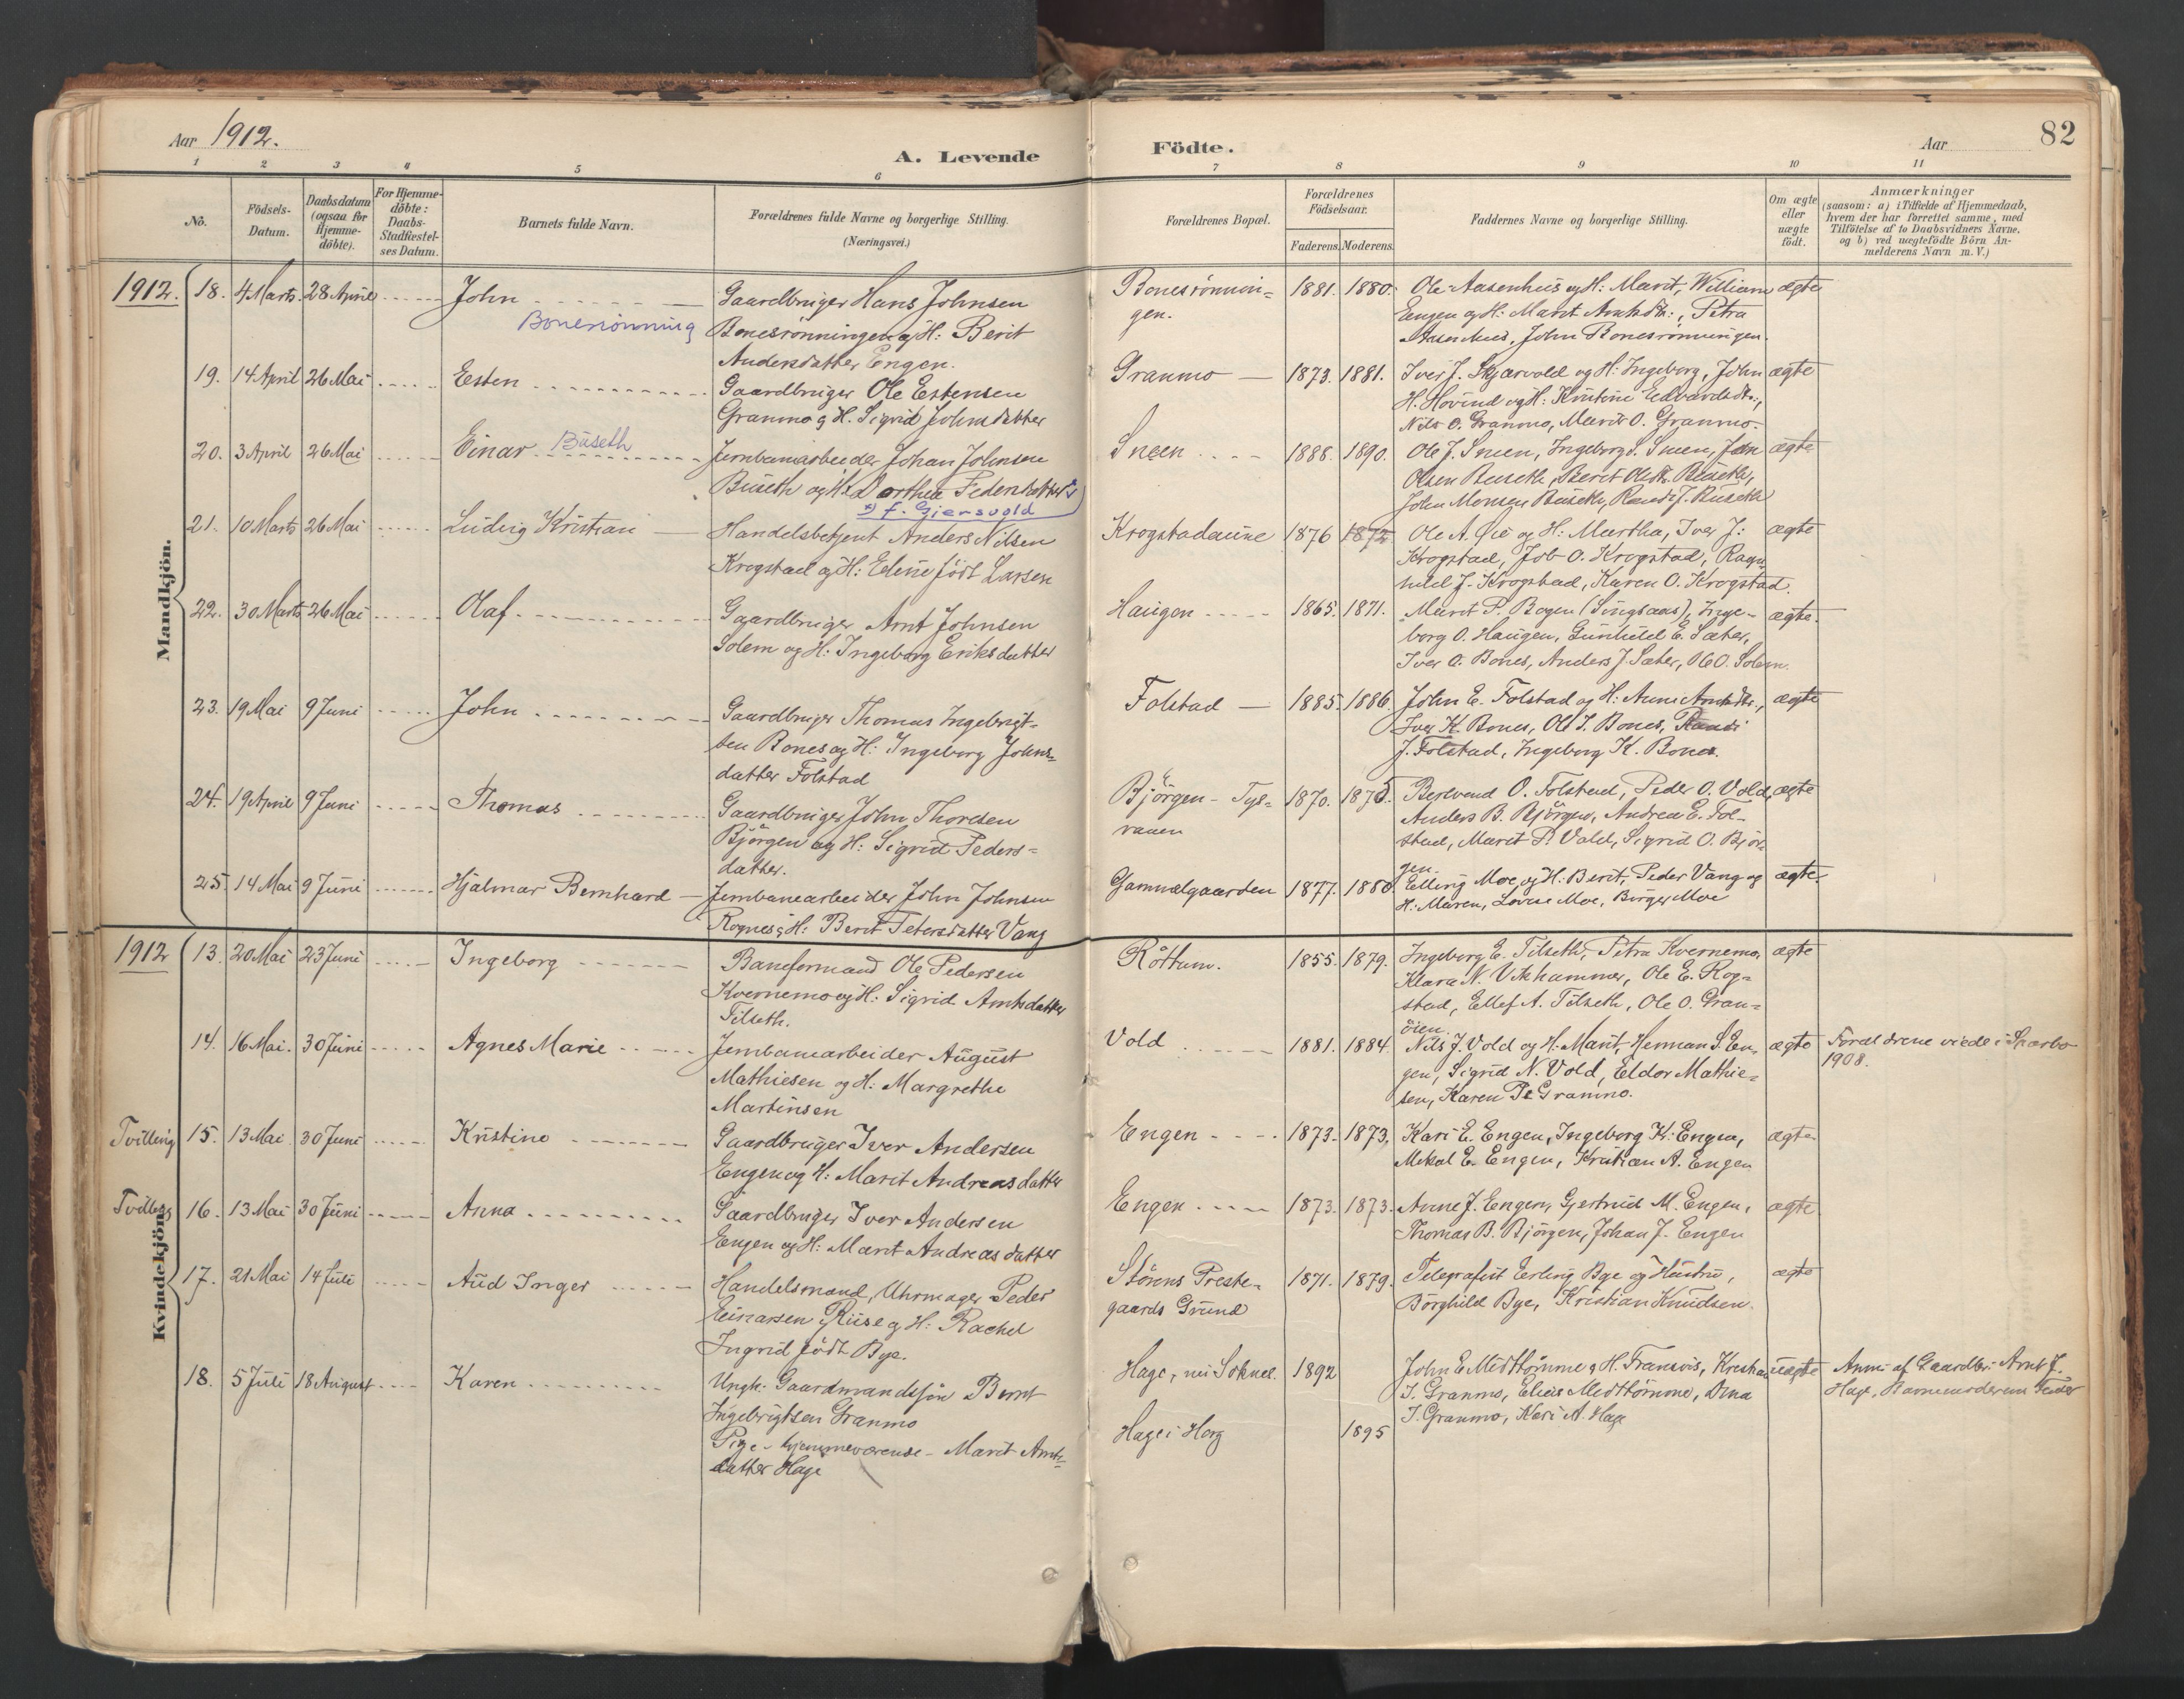 Aar 1912.
A. Levende
Födte.
Aar
82
1 2 3 4 5 6 7 8 9 10 11
No.
Födsels-Datum.
Daabsdatum (ogsaa for Hjemme-döbte).
For Hjemme-döbte: Daabs-Stadfæstel-ses Datum.
Barnets fulde Navn.
Forældrenes fulde Navne og borgerlige Stilling.
(Næringsvei.)
Forældrenes Bopæl.
Forældrenes Födselsaar.
Faderens. Moderens.
Faddernes Navne og borgerlige Stilling.
Om ægte eller uægte födt.
Anmærkninger
(saasom: a) i Tilfælde af Hjemmedaab,
hvem der har forrettet samme, med
Tilföielse af to Daabsvidners Navne.
og b) ved uægtefödte Börn An-
melderens Navn m. V.)
Mandkjön.
1912. 18. 4 Marts 28 April John Gaardbruger Hans Johnsen Bonesrönnin- 1881. 1880. Ole Aasenhus og H: Marit, William ægte
Bonesrönning Bonesrönningen og H: Berit gen. Engen og H: Marit Arntsdtr:, Petra
Andersdatter Engen. Aasenhus, John Bonesrönningen.
19. 14 April 26 Mai Esten Gaardbruger Ole Estensen Granmo 1873. 1881. Iver J. Skjærvold og H: Ingeborg, John ægte
Granmo og H. Sigrid Johnsdatter H. Hovind og H: Kristine Edvardsdtr.,
Nils O. Granmo, Marit O. Granmo.
20. 3 April 26 Mai Einar Buseth Jernbanearbeider Johan Johnsen Sneen 1888. 1890. Ole J. Sneen, Ingeborg S. Sneen, John ægte
Buseth og H: Dorthea Pedersdatter x) Olsen Buseth, Beret Olsdtr. Buseth,
x) f. Gjersvold John Monsen Buseth, Randi J. Buseth
21. 10 Marts 26 Mai Ludvig Kristian Handelsbetjent Anders Nilsen Krogstadaune 1876 1872 Ole A. Öie og H: Martha, Iver J: ægte
Krogstad og H: Eline födt Larsen Krogstad, Job O. Krogstad, Ragn-
hild J. Krogstad, Karen O. Krogstad.
22. 30 Marts 26 Mai Olaf. Gaardbruger Arnt Johnsen Haugen 1865. 1871. Marit P. Bogen (Singsaas), Inge- ægte.
Solem og H: Ingeborg Eriksdatter borg O. Haugen, Gunhild E. Sæter,
Iver O. Bones, Anders J. Sæter, Ole O. Solem.
23. 19 Mai 9 Juni John Gaardbruger Thomas Ingebrigt- Folstad 1885. 1886. John E. Folstad og H: Anne Arntsdtr., ægte
sen Bones og H: Ingeborg Johns- Iver K. Bones, Ole I. Bones, Randi
datter Folstad J. Folstad, Ingeborg K. Bones.
24. 19 April 9 Juni Thomas Gaardbruger John Thoresen Björgen - 1870. 1875. Bertvend O. Folstad, Peder O. Vold, ægte
Björgen og H: Sigrid Peders- Anders B. Björgen, Andrea E. Fol-
datter. stad, Marit P. Vold, Sigrid O. Björ-
gen.
25. 14 Mai 9 Juni Hjalmar Bernhard Jernbanearbeider John Johnsen Gammelgaarden 1877. 1880. Elling Moe og H: Berit, Peder Vang og ægte.
Rognes og H: Berit Petersdatter Vang H: Maren, Lovise Moe, Birger Moe
Kvindekjön.
1912 13. 20 Mai 23 Juni Ingeborg Baneformand Ole Pedersen Röttum. 1855. 1879. Ingeborg E. Tilseth, Petra Kvernemo, ægte
Kvernemo og H: Sigrid Arntsdatter Klara N. Vikhammer, Ole E. Rog-
Tilseth. stad, Ellef A. Tilseth, Ole O. Gran-
öien.
14. 16 Mai. 30 Juni Agnes Marie Jernbanearbeider August Vold 1881. 1884. Nils J. Vold og H: Marit, Herman S. En- ægte Forældrene viede i Sparbo
Mathiesen og H: Margrethe gen, Sigrid N. Vold, Eldor Mathie- 1908.
Martinsen sen, Karen Granmo.
Tvilling 15. 13 Mai 30 Juni Kristine Gaardbruger Iver Andersen Engen 1873. 1873. Kari E. Engen, Ingeborg K. Engen, ægte
Engen og H: Marit Andreasdatter Mekal E. Engen, Kristian A. Engen
Tvilling 16. 13 Mai 30 Juni Anna Gaardbruger Iver Andersen Engen 1873. 1873. Anne J. Engen, Gjertrud M. Engen, ægte
Engen og H: Marit Andreasdatter Thomas B. Björgen, Johan J. Engen
17. 21 Mai 14 Juli Aud Inger Handelsmand, Uhrmager Peder Störens Preste- 1871. 1879. Telegrafist Erling Bye og Hustru, ægte
Einarsen Riise og H: Rachel gaards Grund Borghild Bye, Kristian Knudsen.
Ingrid födt Bye.
18. 5 Juli 18 August Karen Ungk: Gaardmandssön Bernt Hage, nu Soknel. 1892 John E. Midttömme og H. Fransvis, Kristian uægte Anm: af Gaardbr: Arnt J.
Ingebrigtsen Granmo I. Granmo, Elias Midttömme, Dina Hage, Barnemoderens Fader
Pige - hjemmeværende - Marit Arnts- Hage i Horg 1895 I. Granmo, Kari A. Hage
datter Hage